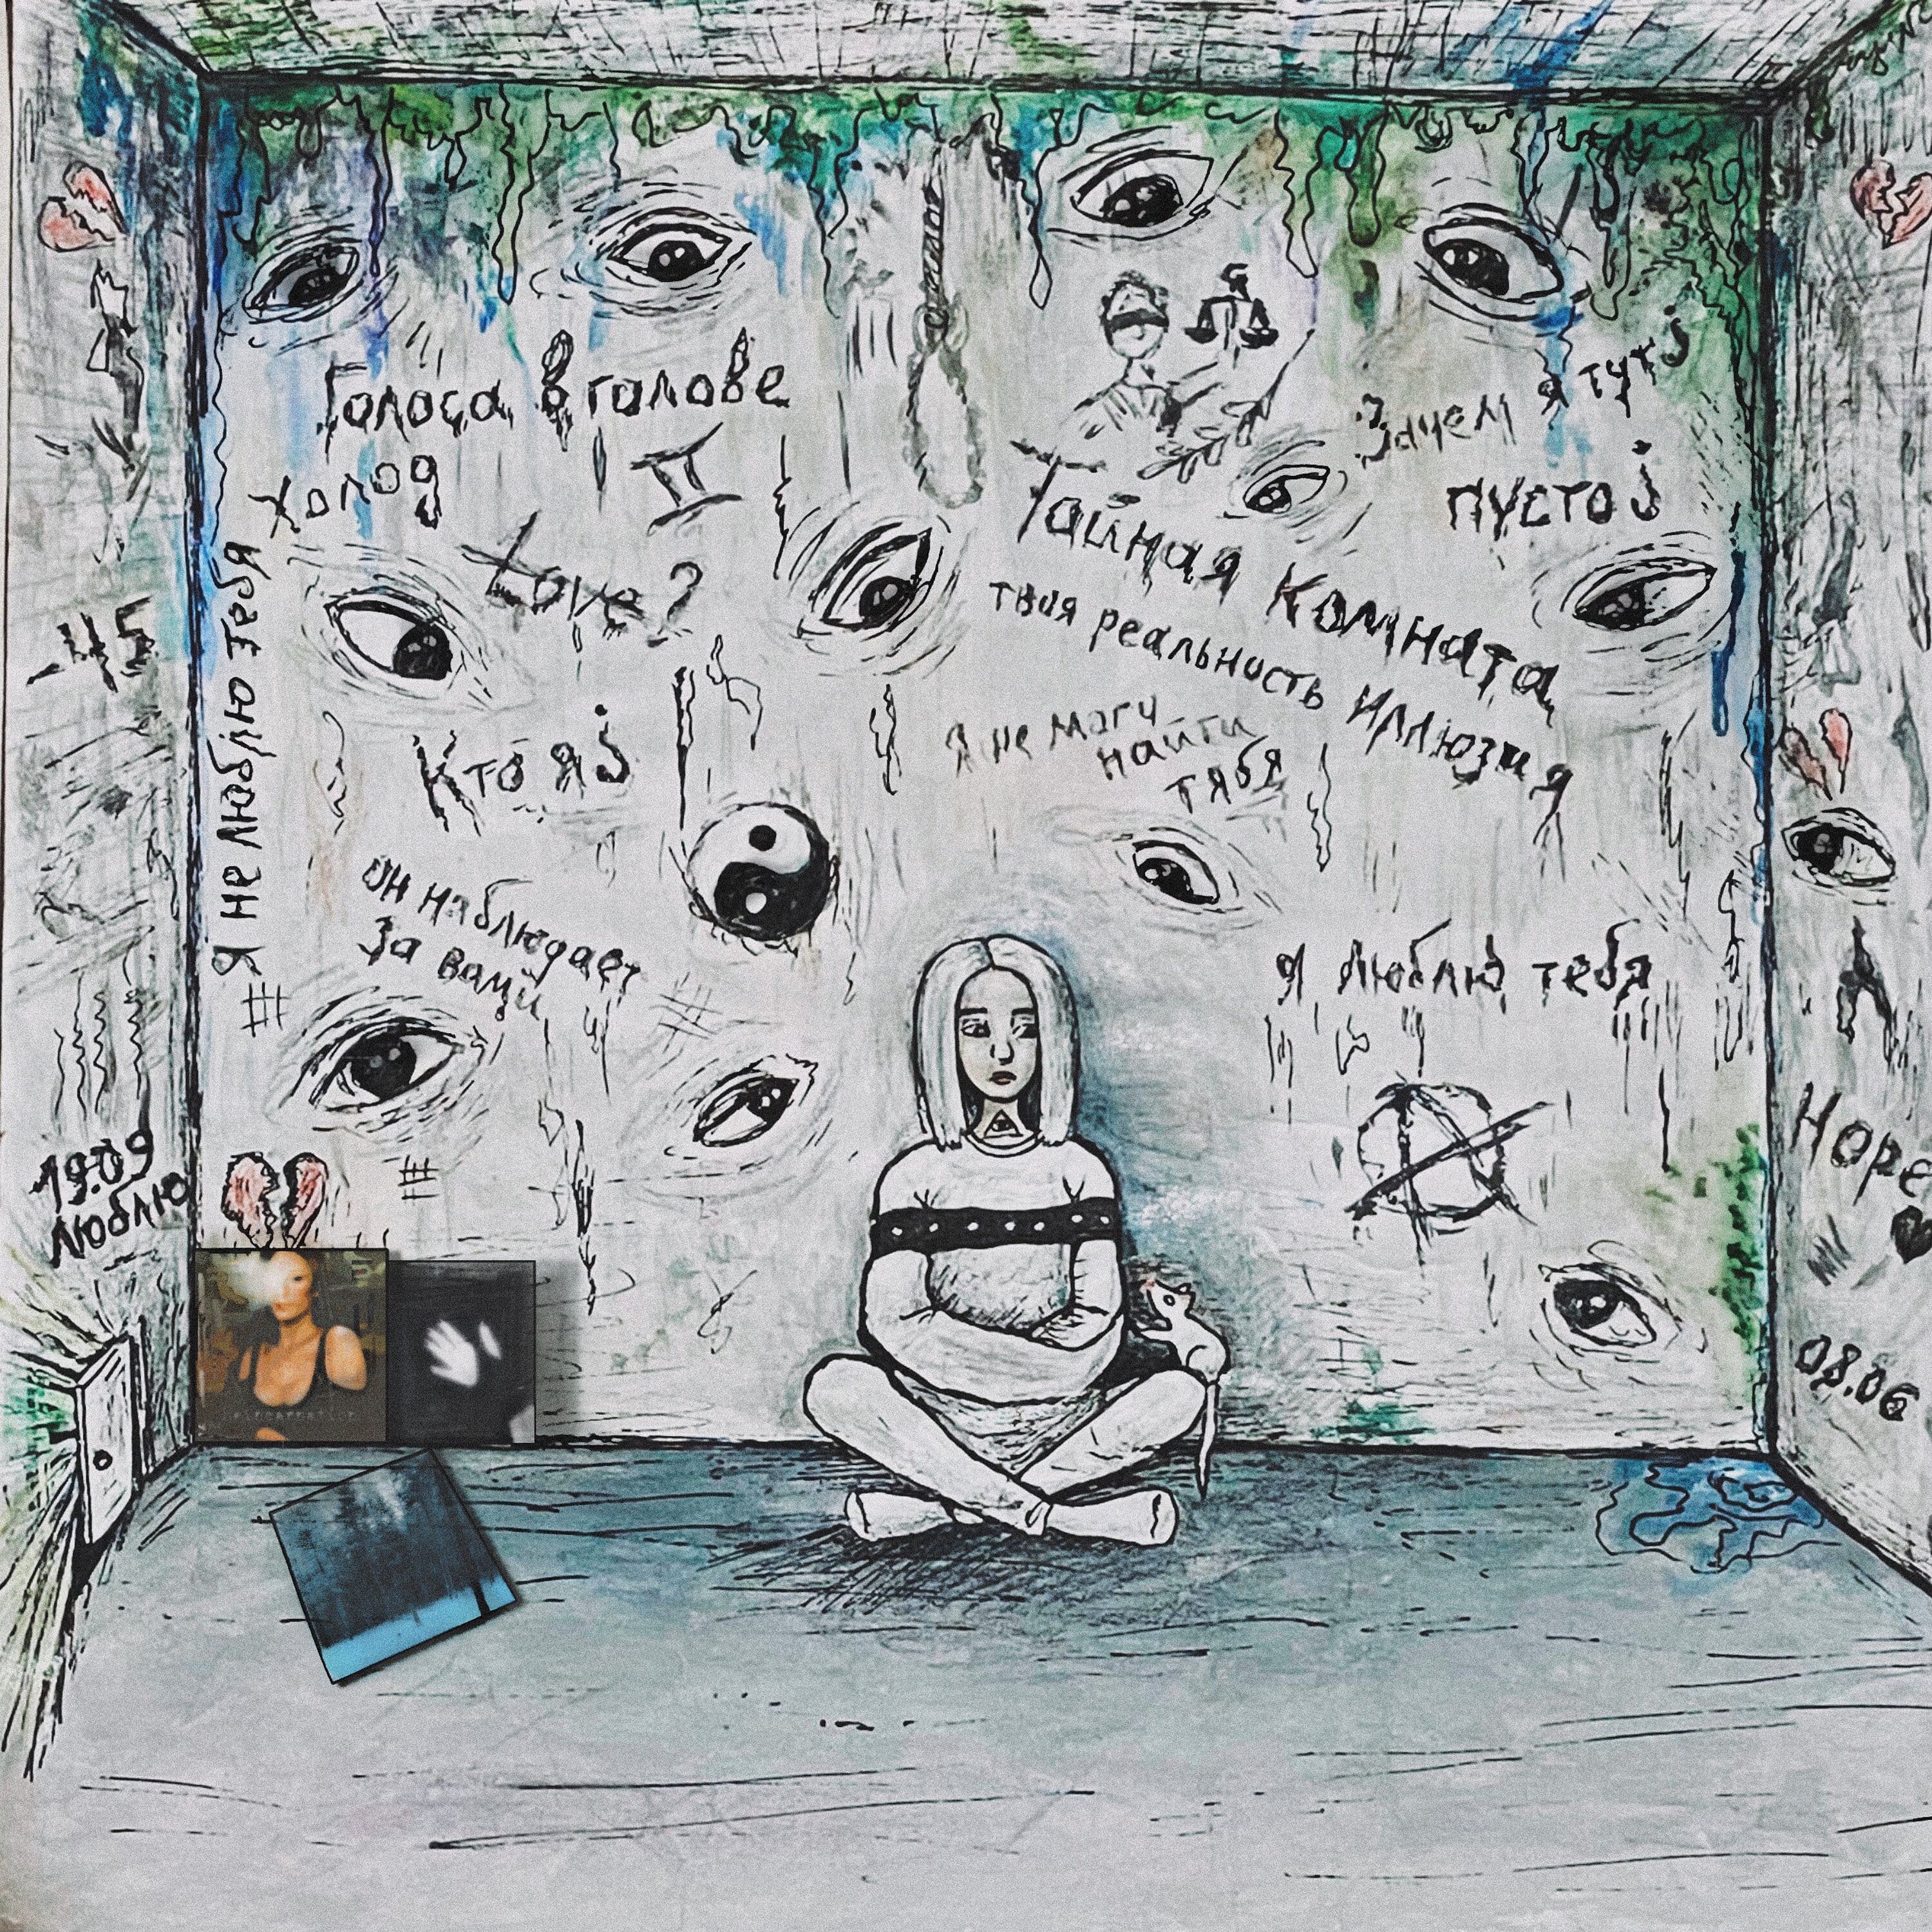 Голоса в голове
Зачем я тут?
Холод
пусто?
Love?
Тайная комната
твоя реальность иллюзия
-45
Я не люблю тебя
Кто я?
Я не могу
найти
тябя
он наблюдает
за вами
я люблю тебя
19.09
люблю
Hope
08.06